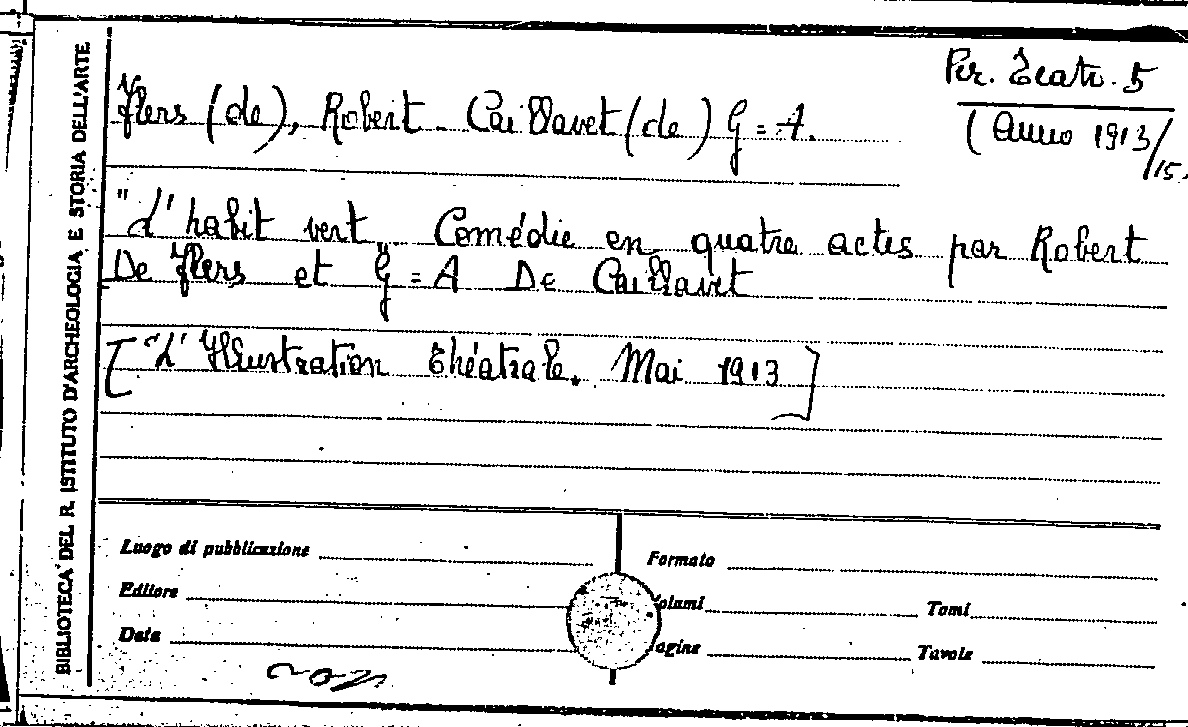 BIBLIOTECA DEL R. ISTITUTO D'ARCHEOLOGIA E STORIA DELL'ARTE
Per. Teatr. 5
(Anno 1913/15.
Flers (de), Robert - Caillavet (de) G = A.
"L'habit vert" Comédie en quatre actes par Robert
De Flers et G = A De Caillavet
["L'Illustration théatrale. Mai 1913]
Luogo di pubblicazione
Formato
Editore
Volumi
Tomi
Data
Pagine
Tavole